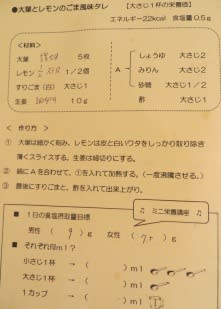 ●大葉とレモンのごま風味タレ 【大さじ1杯の栄養価】
エネルギー22kcal 食塩量0.5g
<材料>
大葉 5枚
レモン 1/2個
すりごま(白) 大さじ1
生姜 10g
A
しょうゆ 大さじ2
みりん 大さじ2
砂糖 大さじ1/2
酢 大さじ1
< 作り方 >
① 大葉は細かく刻み、レモンは皮と白いワタをしっかり取り除き
薄くスライスする。生姜は細切りにする。
② 鍋にAを合わせて、①を入れて加熱する。(一度沸騰させる。)
③ 最後にすりごまと、酢を入れて出来上がり。
ミニ栄養講座
■ 1日の食塩摂取量目標
男性 ( )g 女性 ( 7.5 )g
■ それぞれ何ml?
小さじ1杯 → ( )ml
大さじ1杯 → ( )ml
1カップ → ( )ml